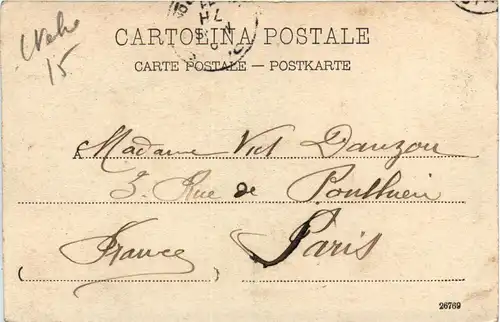 CARTOLINA POSTALE
CARTE POSTALE — POSTKARTE
15
A Madame Vict Danzon
3. Rue de Ponthieu
Paris
France
26769